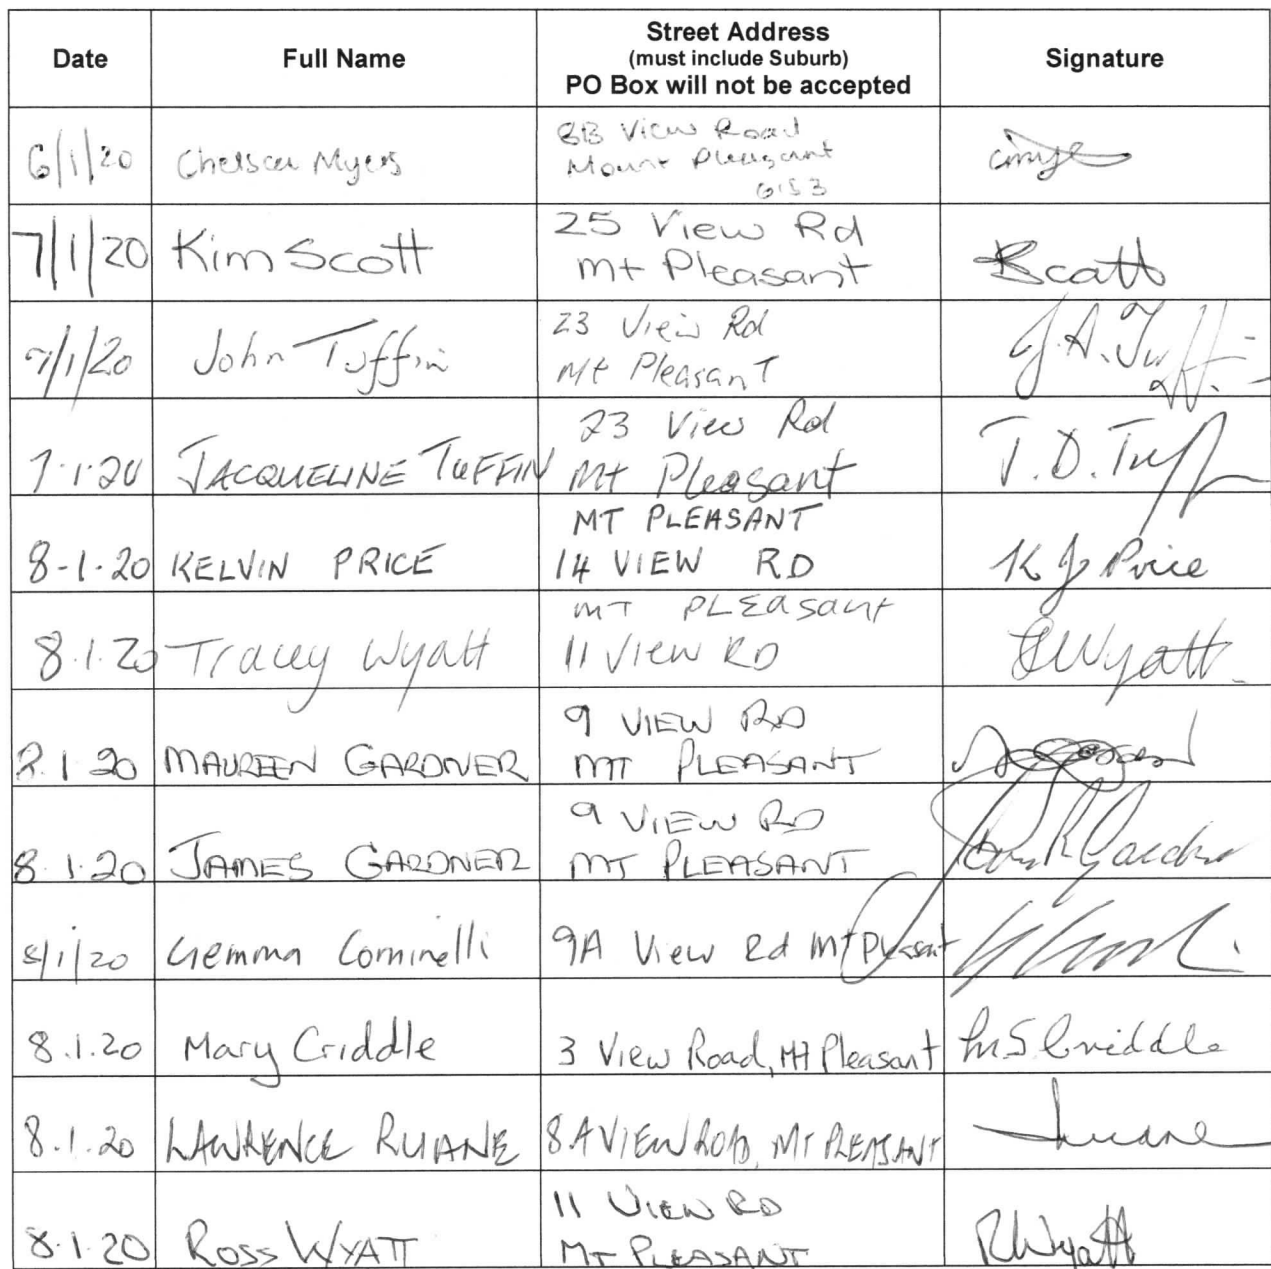 Date
Full Name
Street Address
(must include Suburb)
PO Box will not be accepted
Signature
6/1/20 Chelsea Myers
8B View Road
Mount Pleasant
6153
7/1/20 Kim Scott
25 View Rd
Mt Pleasant
Scott
7/1/20 John Tuffin
23 View Rd
Mt Pleasant
J.A. Tuffin
7.1.20 JACQUELINE TUFFIN
23 View Rd
Mt Pleasant
J.D. Tuffin
8-1-20 KELVIN PRICE
MT PLEASANT
14 VIEW RD
K J Price
8.1.20 Tracey Wyatt
MT PLEasant
11 View RD
Wyatt
8.1.20 MAUREEN GARDNER
9 VIEW RD
MT PLEASANT
8.1.20 JAMES GARDNER
9 VIEW RD
MT PLEASANT
James R Gardner
8/1/20 Gemma Cominelli 9A View Rd Mt Pleasant
8.1.20 Mary Criddle 3 View Road, Mt Pleasant M S Criddle
8.1.20 LAWRENCE RUANE 8A VIEW ROAD, MT PLEASANT Ruane
8.1.20 ROSS WYATT
11 VIEW RD
MT PLEASANT
R Wyatt